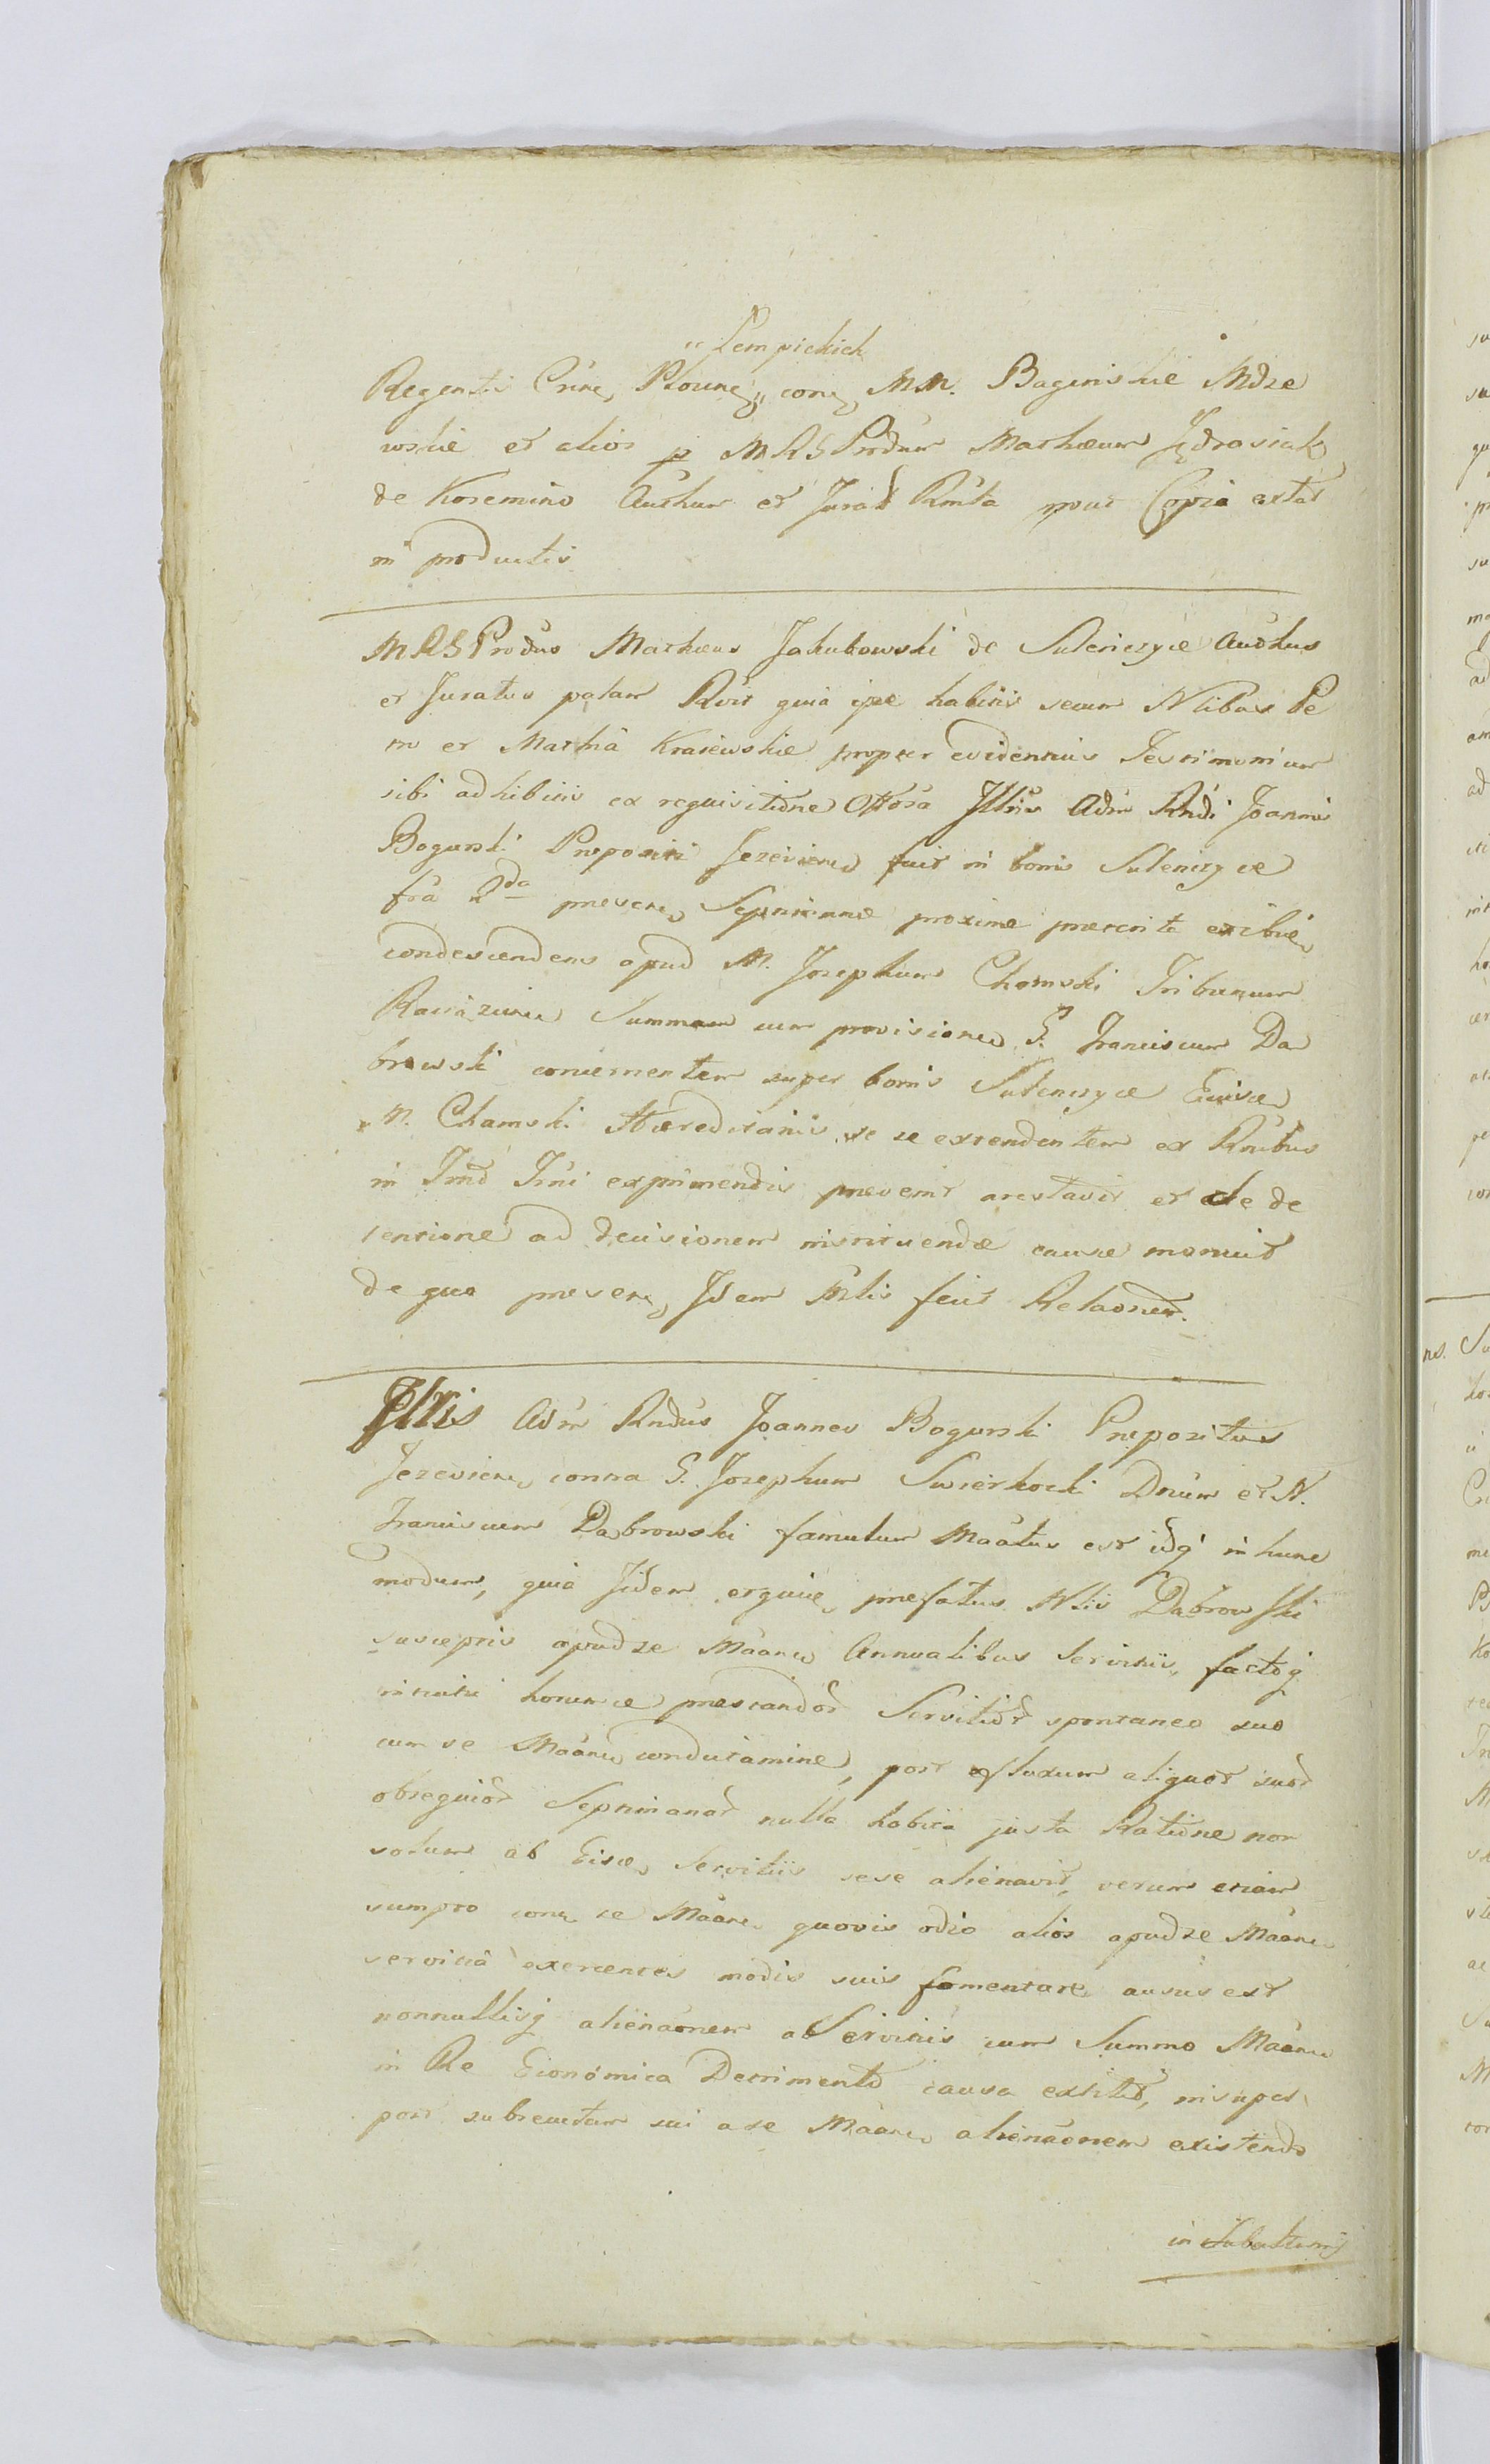 "Lempickich
Regentis Crüne, Plocine,," cone, MM. Baginskie Mdze
wskie et alios p MRSProdum Mathæum Jędrasiak
de Koremino Authum et Jurat Rmta prout Copia extat
in productis
MRSProdus Matheus Jakubowski de Sulenczyce Authus
et Juratus palam Rvit quia ipse habitis secum Nlibus Pe
tro et Mathia Kraiewskie propter evidentius Testimonium
sibi adhibitis ex requisitione Offosa Jllris Adm Rndi Joannis
Bogurski Prepositi Jezeviens fuit in bonis Sulenczyce
fra 2da presen, Septimanæ proxime præterite
condescendens apud M. Josephum Chamski Tribunum
Raciązien Summam cum provisione G. Franciscum Dą
browski concernentem super bonis Sulenczyce
M. Chamski Hæreditariis se se extendentem ex Rnibus
in Tmo Trni exprimendis prevenit arestavit et de de
tentione ad decisionem instituendæ causæ monuit
de quo presen, Jdem Mlis fecit Relaonem.
Jllris Adm Rndus Joannes Bogurski Prepositus
Jezeviens contra G. Josephum Swierkocki Dnum et N.
Franciscum Dąbrowski famulum Maatus est idq in hunc
modum, quia Jidem prefatus Nlis Dąbrowski
susceptis apud se Maane Annualibus Servitiis, factoq
initiu horumce prestandor Servitior spontaneo suo
cum se Maane condictamine, post efluxum aliquot suor
obsequior Septimanar nulla habita justa Ratione non
solum ab Eisce, Servitiis sese alienavit, verum etiam
sumpto cone se Maane quovis odio alios apud se Maane
servitia exercentes modis suis fomentare ausus est
nonnullisq alienaonem ab Servitiis cum Summo Maane
in Re Economica Detrimento causa extitit, insuper
post subsecutam sui a se Maane alienaonem existendo
in